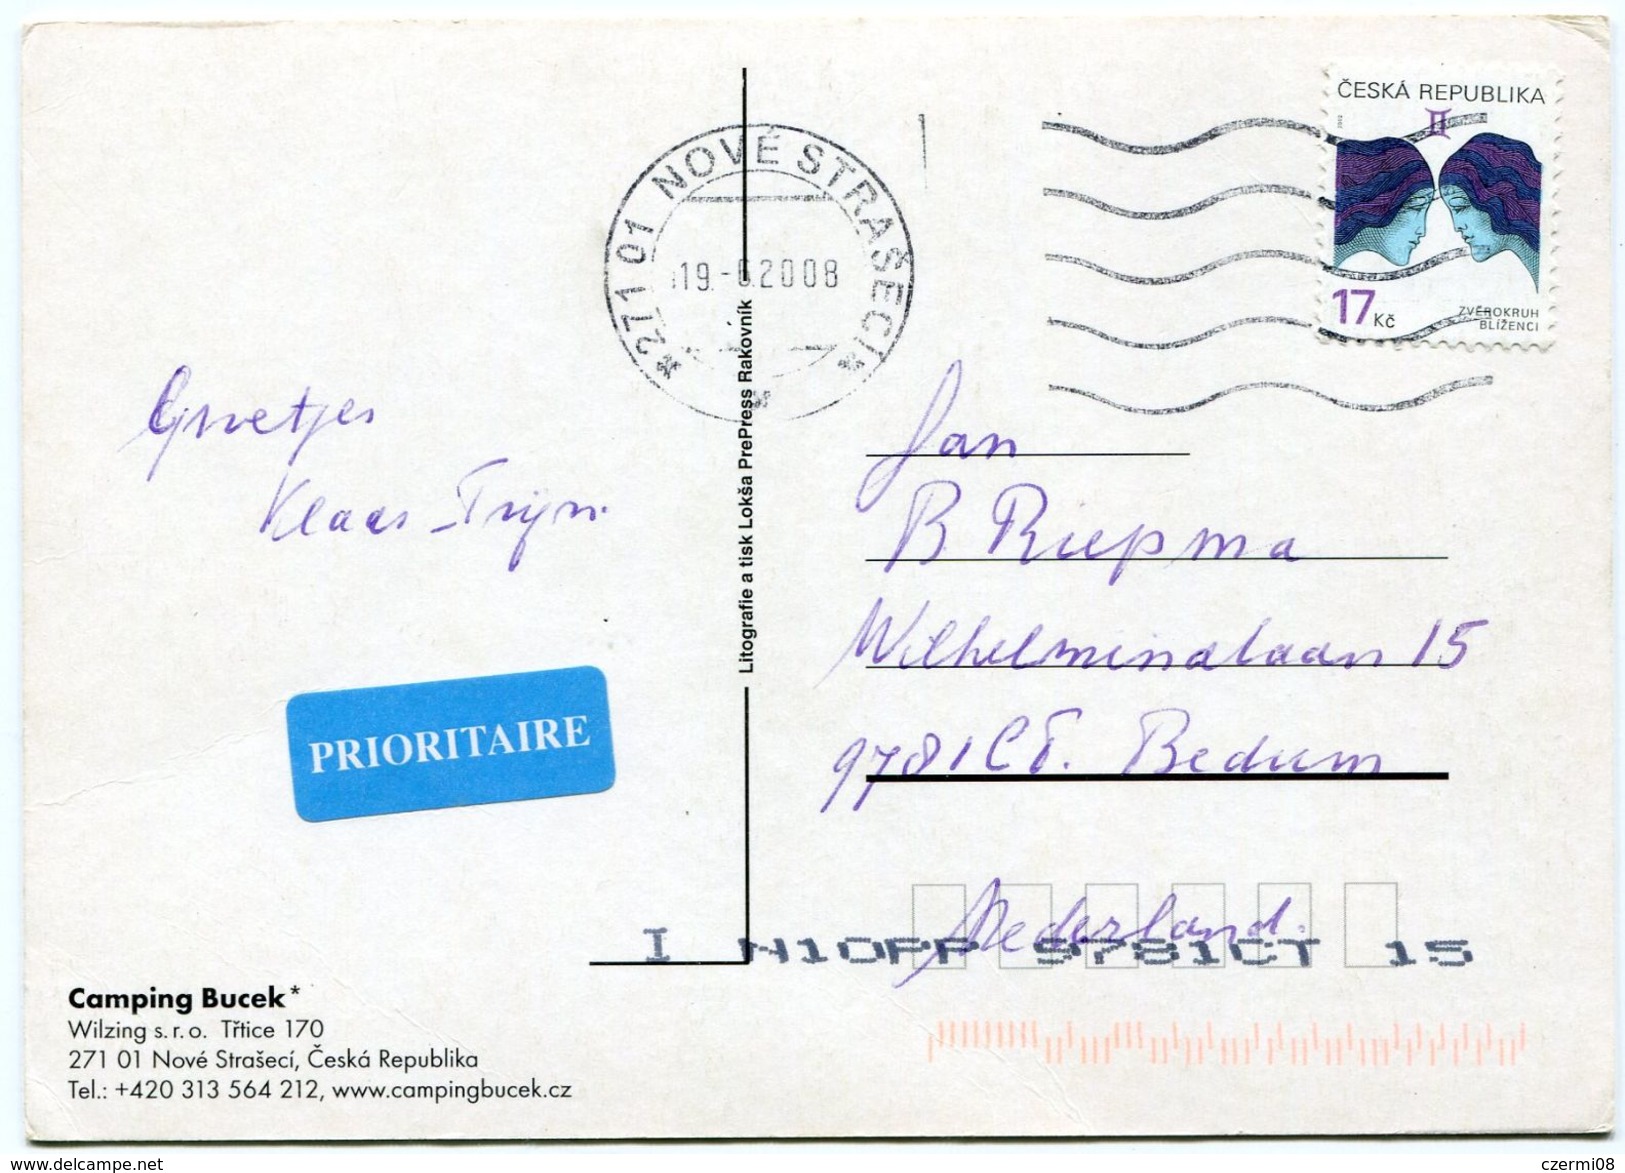 ČESKÁ REPUBLIKA
17 Kč
ZVĚROKRUH
BLÍŽENCI
271 01 NOVÉ STRAŠECÍ
19.-6.2008
Groetjes
Klaas-Trijn.
PRIORITAIRE
Litografie a tisk Lokša PrePress Rakovník
Jan
B Riepma
Wilhelminalaan 15
9781CT. Bedum
Nederland.
I N10PP 9781CT 15
Camping Bucek*
Wilzing s.r.o. Třtice 170
271 01 Nové Strašecí, Česká Republika
Tel.: +420 313 564 212, www.campingbucek.cz
www.delcampe.net
czermi08